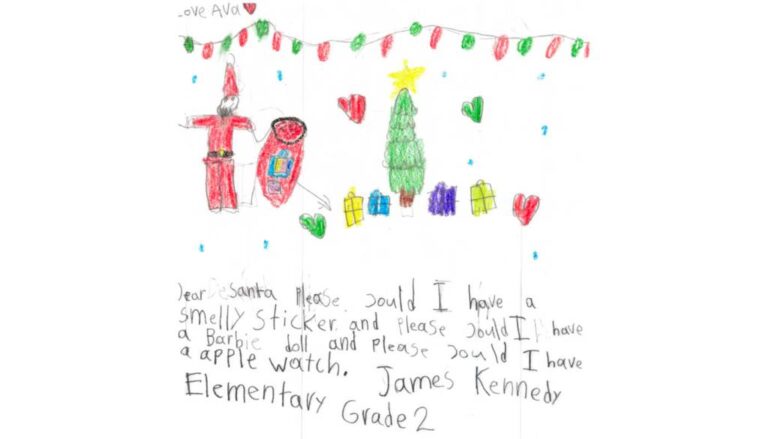 Love Ava
Dear Santa Please Could I have a
smelly sticker and Please Could I have
a Barbie doll and Please Could I have
a apple watch. James Kennedy
Elementary Grade 2